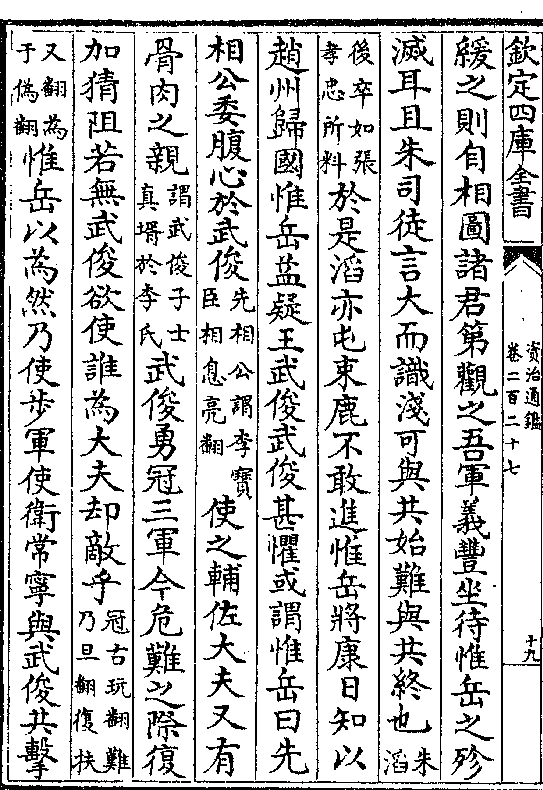 欽定四庫全書
資治通鑑
卷二百二十七
十九
緩之則自相圖諸君第觀之吾軍義豐坐待惟岳之殄
滅耳且朱司徒言大而識淺可與共始難與共終也朱滔
後卒如張孝忠所料於是滔亦屯束鹿不敢進惟岳將康日知以
趙州歸國惟岳益疑王武俊武俊甚懼或謂惟岳曰先
相公委腹心於武俊先相公謂李寶臣相息亮翻使之輔佐大夫又有
骨肉之親謂武俊子士真壻於李氏武俊勇冠三軍今危難之際復
加猜阻若無武俊欲使誰為大夫却敵乎冠古玩翻難乃旦翻復扶
又翻為于偽翻惟岳以為然乃使步軍使衛常寧與武俊共擊